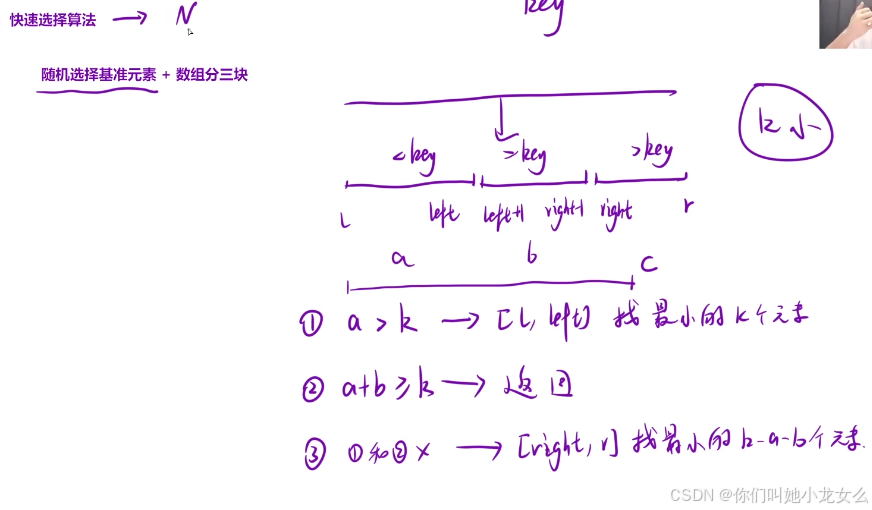 快速选择算法 → N
key
随机选择基准元素 + 数组分三块
k 小
<key =key >key
l left left+1 right-1 right r
a b c
① a > k → [l, left] 找最小的 k 个元素
② a+b ≥ k → 返回
③ ①和② × → [right, r] 找最小的 k-a-b 个元素.
CSDN @你们叫她小龙女么